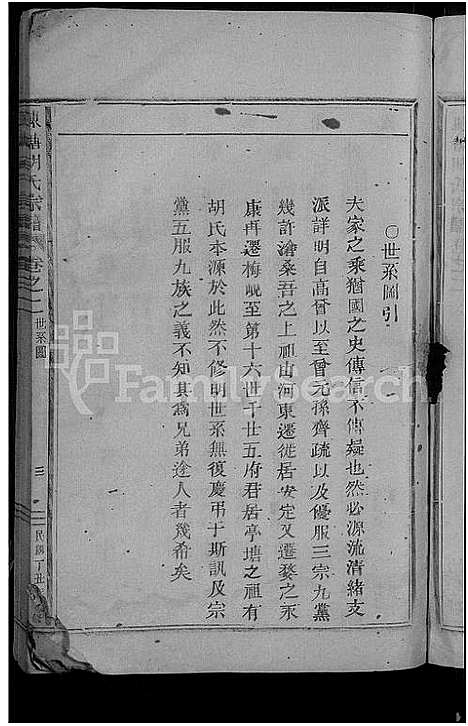 ○世系圖引
夫家之乘猶國之史傳信不傳疑也然必源流清緒支
派詳明自高曾以至曾元孫齊疏以及優服三宗九黨
幾許滄桑吾之上祖山河東遷從居安定又遷婺之永
康再遷梅峴至第十六世千廿五府君居亭塘之祖有
胡氏本源於此然不修明世系無復慶弔于斯訊及宗
黨五服九族之義不知其為兄弟途人者幾希矣
胡氏宗譜 卷之二 世系圖
三
民國丁丑
FamilySearch